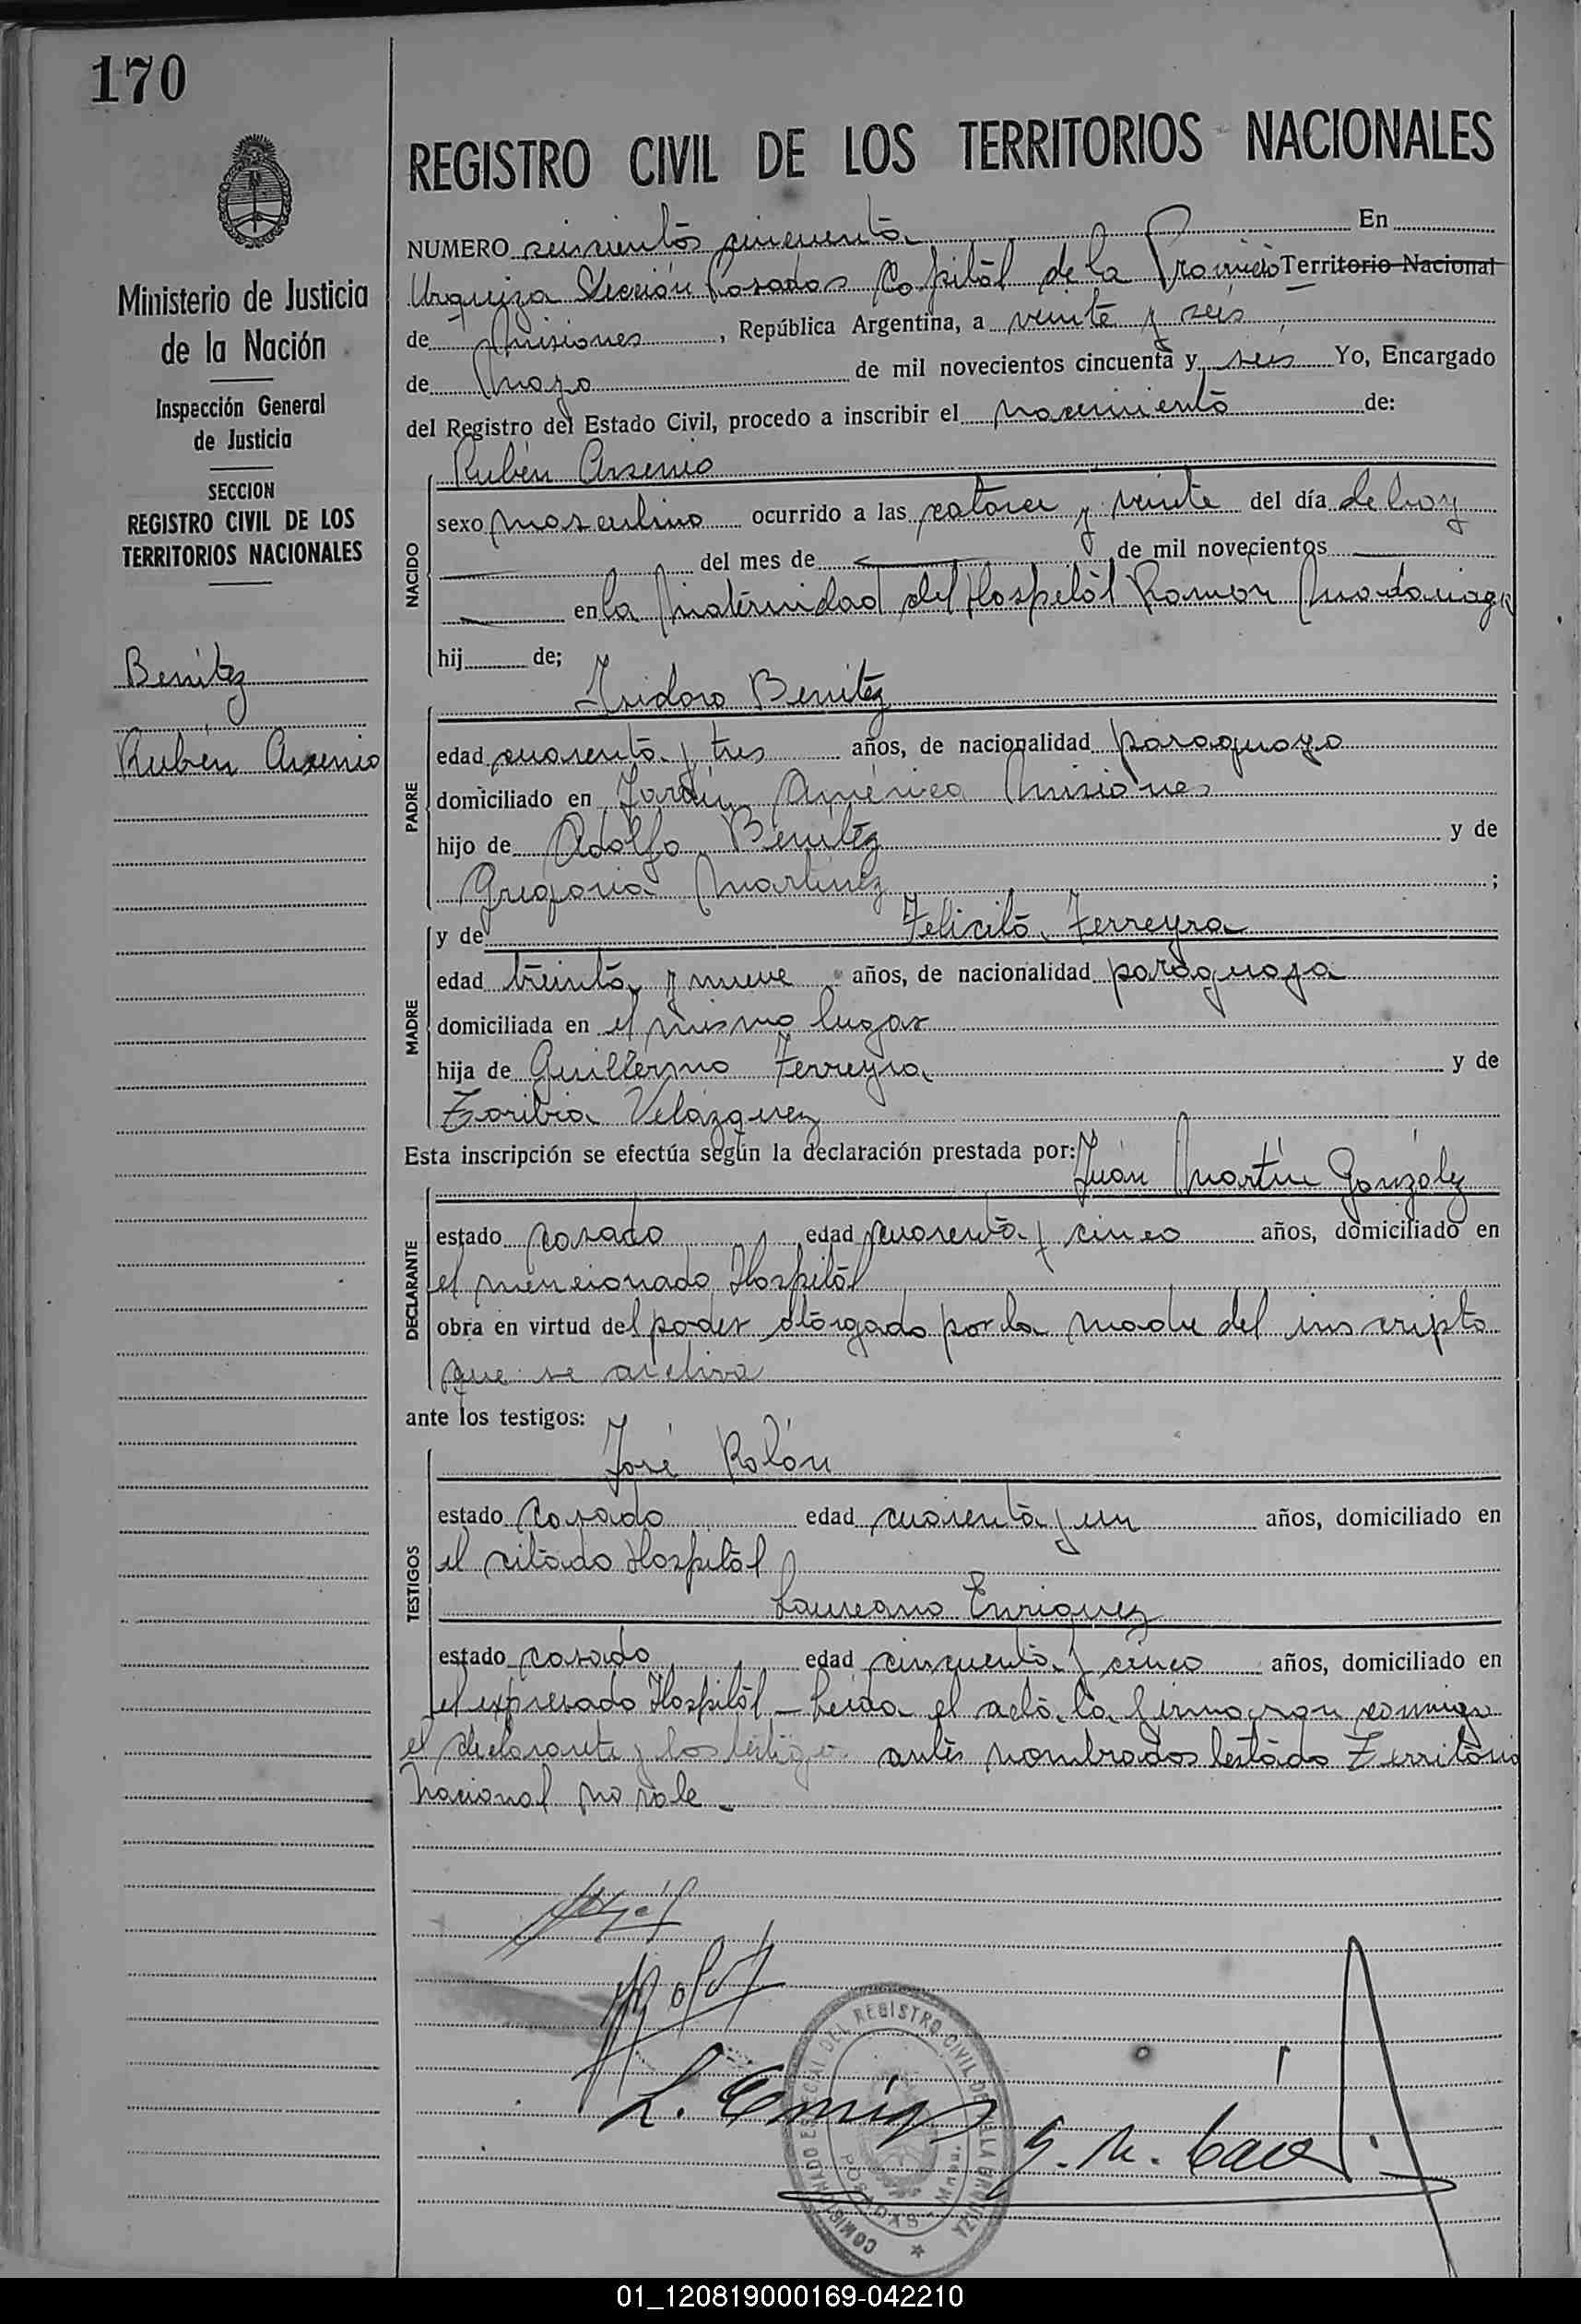 170
REGISTRO CIVIL DE LOS TERRITORIOS NACIONALES
Ministerio de Justicia
de la Nación
Inspección General
de Justicia
SECCION
REGISTRO CIVIL DE LOS
TERRITORIOS NACIONALES
Benitez
Rubén Arsenio
NUMERO seiscientos cincuenta En
Urquiza Sección Posadas Capital de la Provincia Territorio Nacional
de Misiones, República Argentina, a veinte y seis
de Mayo de mil novecientos cincuenta y seis Yo, Encargado
del Registro del Estado Civil, procedo a inscribir el nacimiento de:
NACIDO
Rubén Arsenio
sexo masculino ocurrido a las catorce y veinte del día de hoy
del mes de de mil novecientos
en la Maternidad del Hospital Ramón Madariaga
hij de;
PADRE
Isidoro Benitez
edad cuarenta y tres años, de nacionalidad paraguayo
domiciliado en Jardín América Misiones
hijo de Adolfo Benitez y de
Gregoria Martinez ;
MADRE
y de Felicita Ferreyra
edad treinta y nueve años, de nacionalidad paraguaya
domiciliada en el mismo lugar
hija de Guillermo Ferreyra y de
Toribia Velázquez
Esta inscripción se efectúa según la declaración prestada por:
DECLARANTE
Juán Martín González
estado casado edad cuarenta y cinco años, domiciliado en
el mencionado Hospital
obra en virtud del poder otorgado por la madre del inscripto
que se archiva
ante los testigos:
TESTIGOS
José Rolón
estado casado edad cuarenta y un años, domiciliado en
el citado Hospital
Laureano Enriquez
estado casado edad cincuenta y cinco años, domiciliado en
el expresado Hospital - Leída el acta la firmaron conmigo
el declarante y los testigos antes nombrados testado Territorio
Nacional no vale -
COMISIONADO ESPECIAL DEL REGISTRO CIVIL DE VILLA URQUIZA
POSADAS - Mnes.
01_120819000169-042210